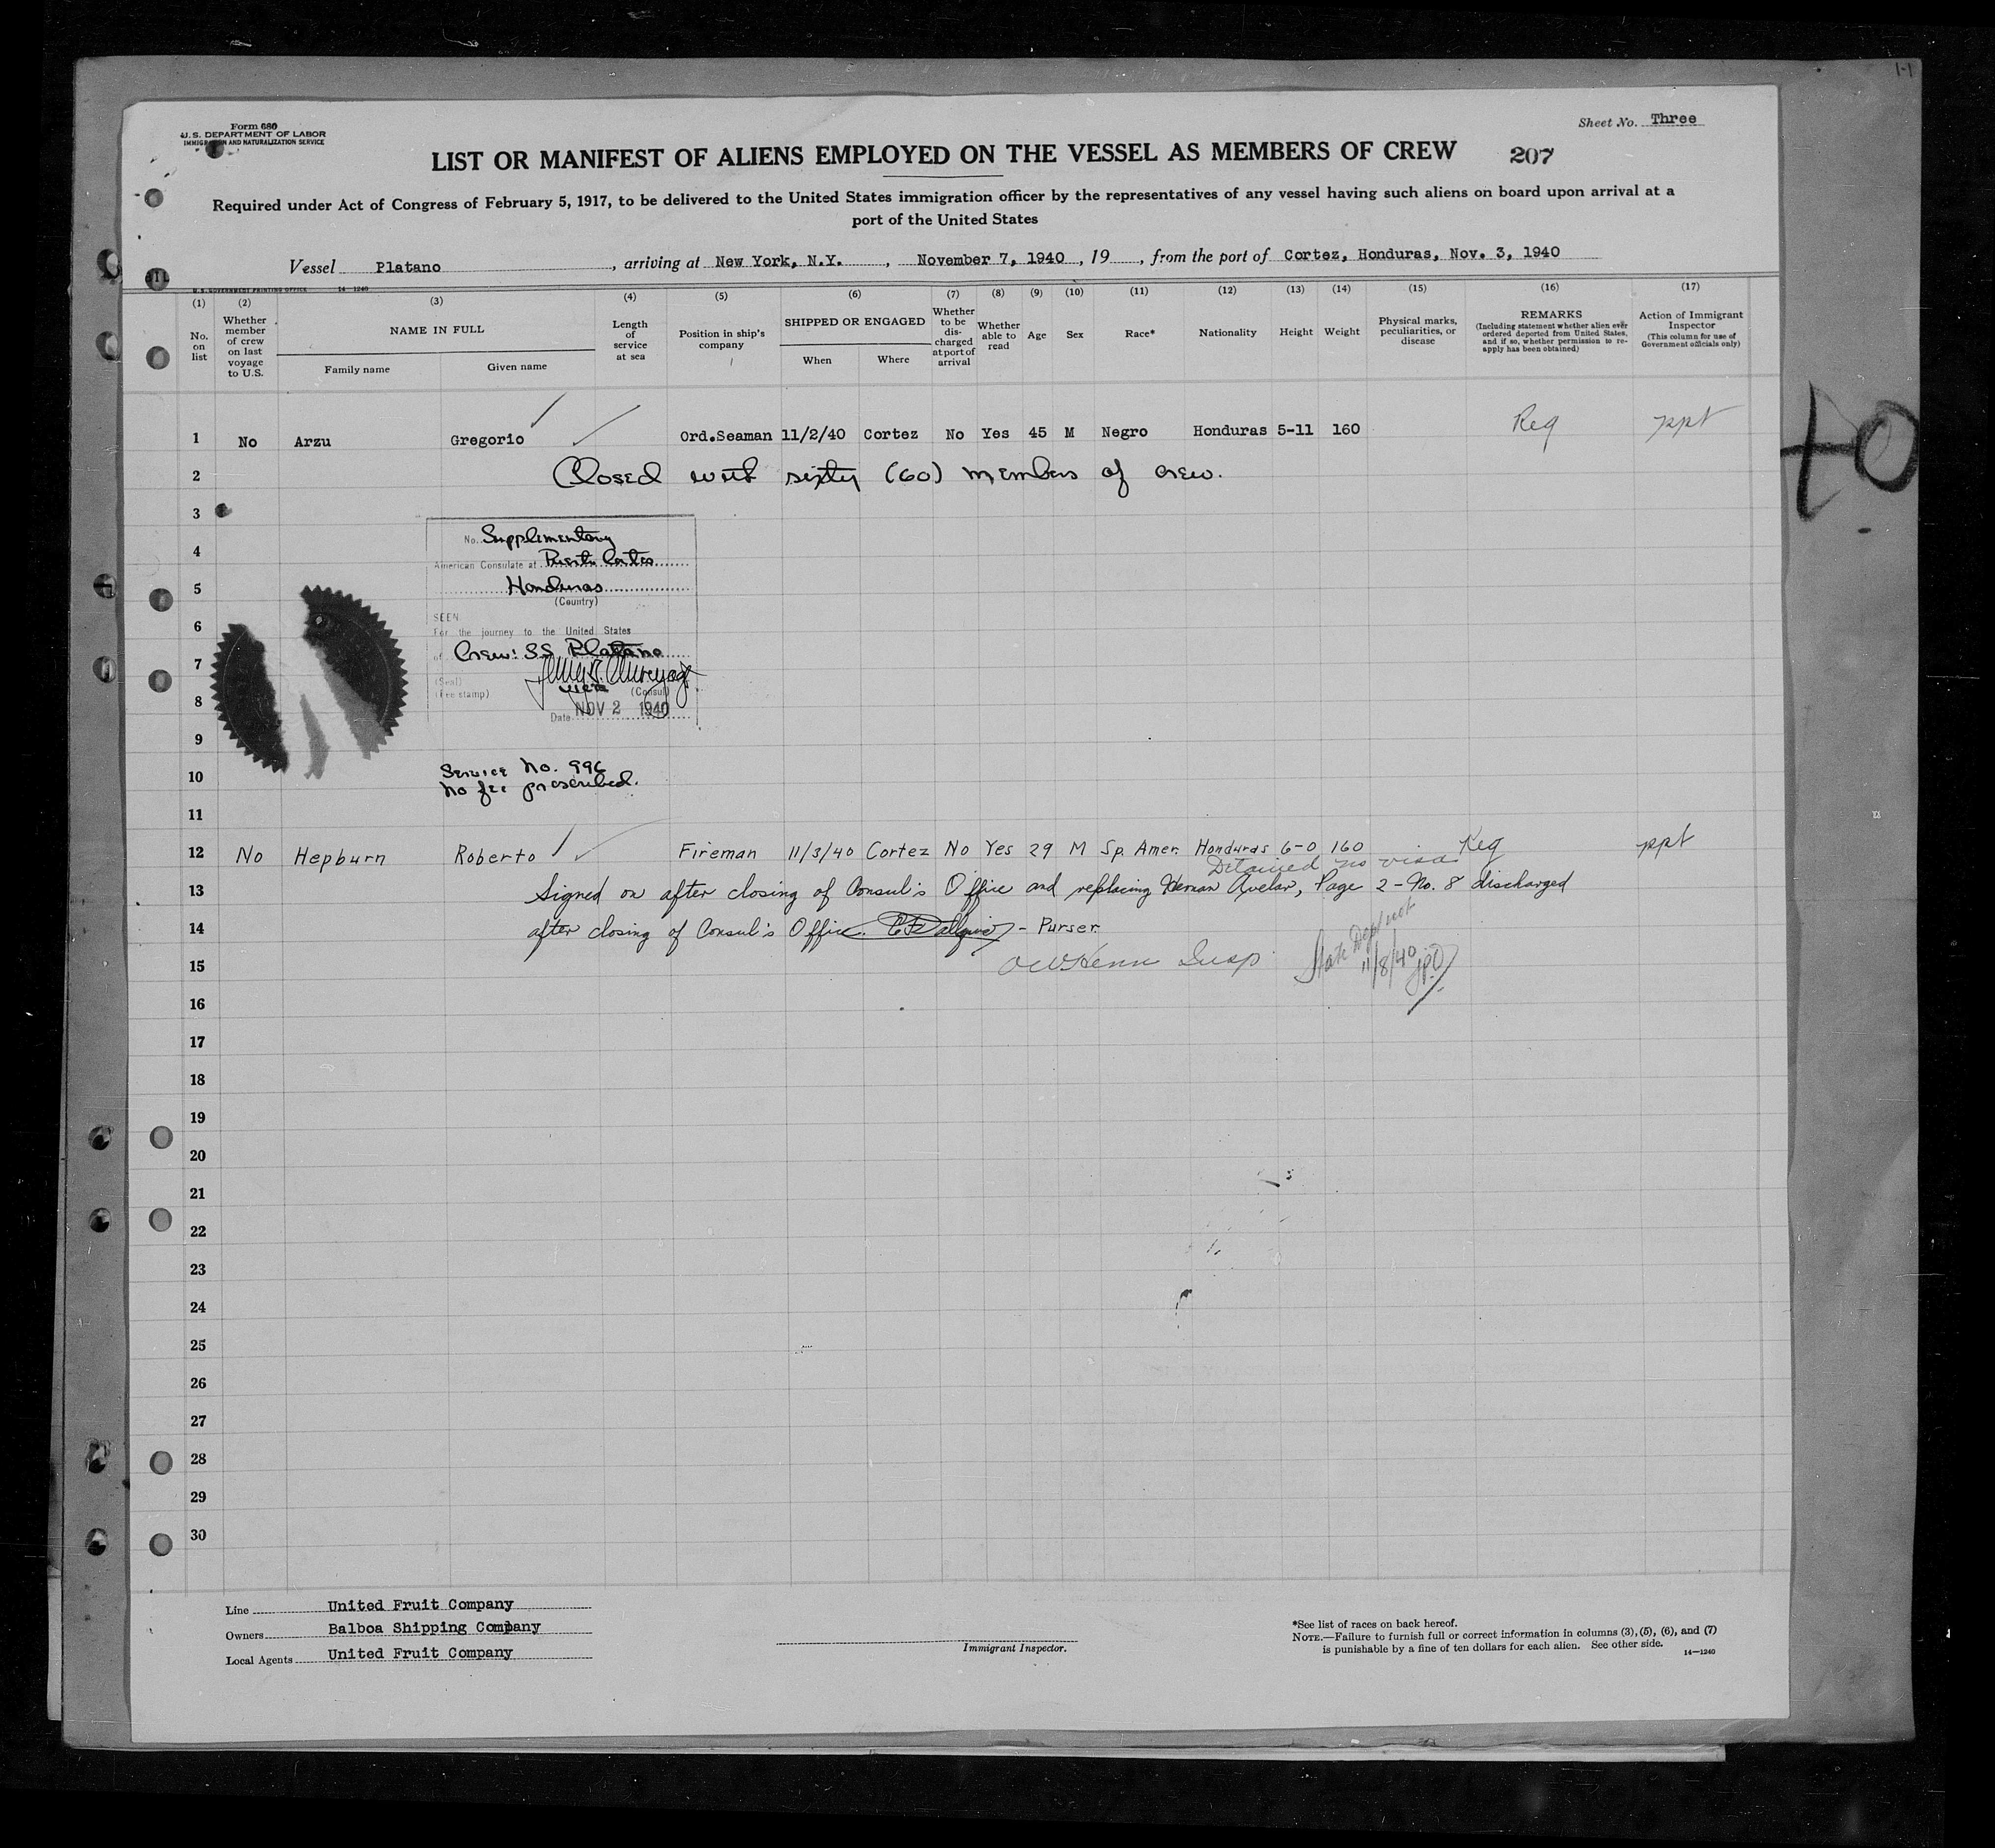 Form 680
U.S. DEPARTMENT OF LABOR
IMMIGRATION AND NATURALIZATION SERVICE
Sheet No. Three
LIST OR MANIFEST OF ALIENS EMPLOYED ON THE VESSEL AS MEMBERS OF CREW
207
Required under Act of Congress of February 5, 1917, to be delivered to the United States immigration officer by the representatives of any vessel having such aliens on board upon arrival at a
port of the United States
Vessel Platano, arriving at New York, N.Y., November 7, 1940, 19, from the port of Cortez, Honduras, Nov. 3, 1940
U.S. GOVERNMENT PRINTING OFFICE 14-1240
(1) No. on list
(2) Whether member of crew on last voyage to U.S.
(3) NAME IN FULL
Family name
Given name
(4) Length of service at sea
(5) Position in ship's company
(6) SHIPPED OR ENGAGED
When
Where
(7) Whether to be discharged at port of arrival
(8) Whether able to read
(9) Age
(10) Sex
(11) Race*
(12) Nationality
(13) Height
(14) Weight
(15) Physical marks, peculiarities, or disease
(16) REMARKS
(Including statement whether alien ever ordered deported from United States, and if so, whether permission to re-apply has been obtained)
(17) Action of Immigrant Inspector
(This column for use of Government officials only)
1 No Arzu Gregorio Ord.Seaman 11/2/40 Cortez No Yes 45 M Negro Honduras 5-11 160 Reg ppt
2 Closed with sixty (60) members of crew.
3
No. Supplimentary
4
American Consulate at Puerto Cortes
5 Honduras
(Country)
SEEN
6
For the journey to the United States
of Crew: SS Platano
7
(Seal)
(Fee stamp)
(Consul)
8
Date NOV 2 1940
9
Service No. 996
10 No fee prescribed.
11
12 No Hepburn Roberto Fireman 11/3/40 Cortez No Yes 29 M Sp. Amer. Honduras 6-0 160 Reg ppt
Detained no visa
13 Signed on after closing of Consul's Office and replacing Hernan Avelar, Page 2-No. 8 discharged
14 after closing of Consul's Office. - Purser
State Dept not
15 Insp 11/8/40
16
17
18
19
20
21
22
23
24
25
26
27
28
29
30
Line United Fruit Company
Owners Balboa Shipping Company
Local Agents United Fruit Company
Immigrant Inspector.
*See list of races on back hereof.
NOTE.—Failure to furnish full or correct information in columns (3), (5), (6), and (7)
is punishable by a fine of ten dollars for each alien. See other side.
14-1240